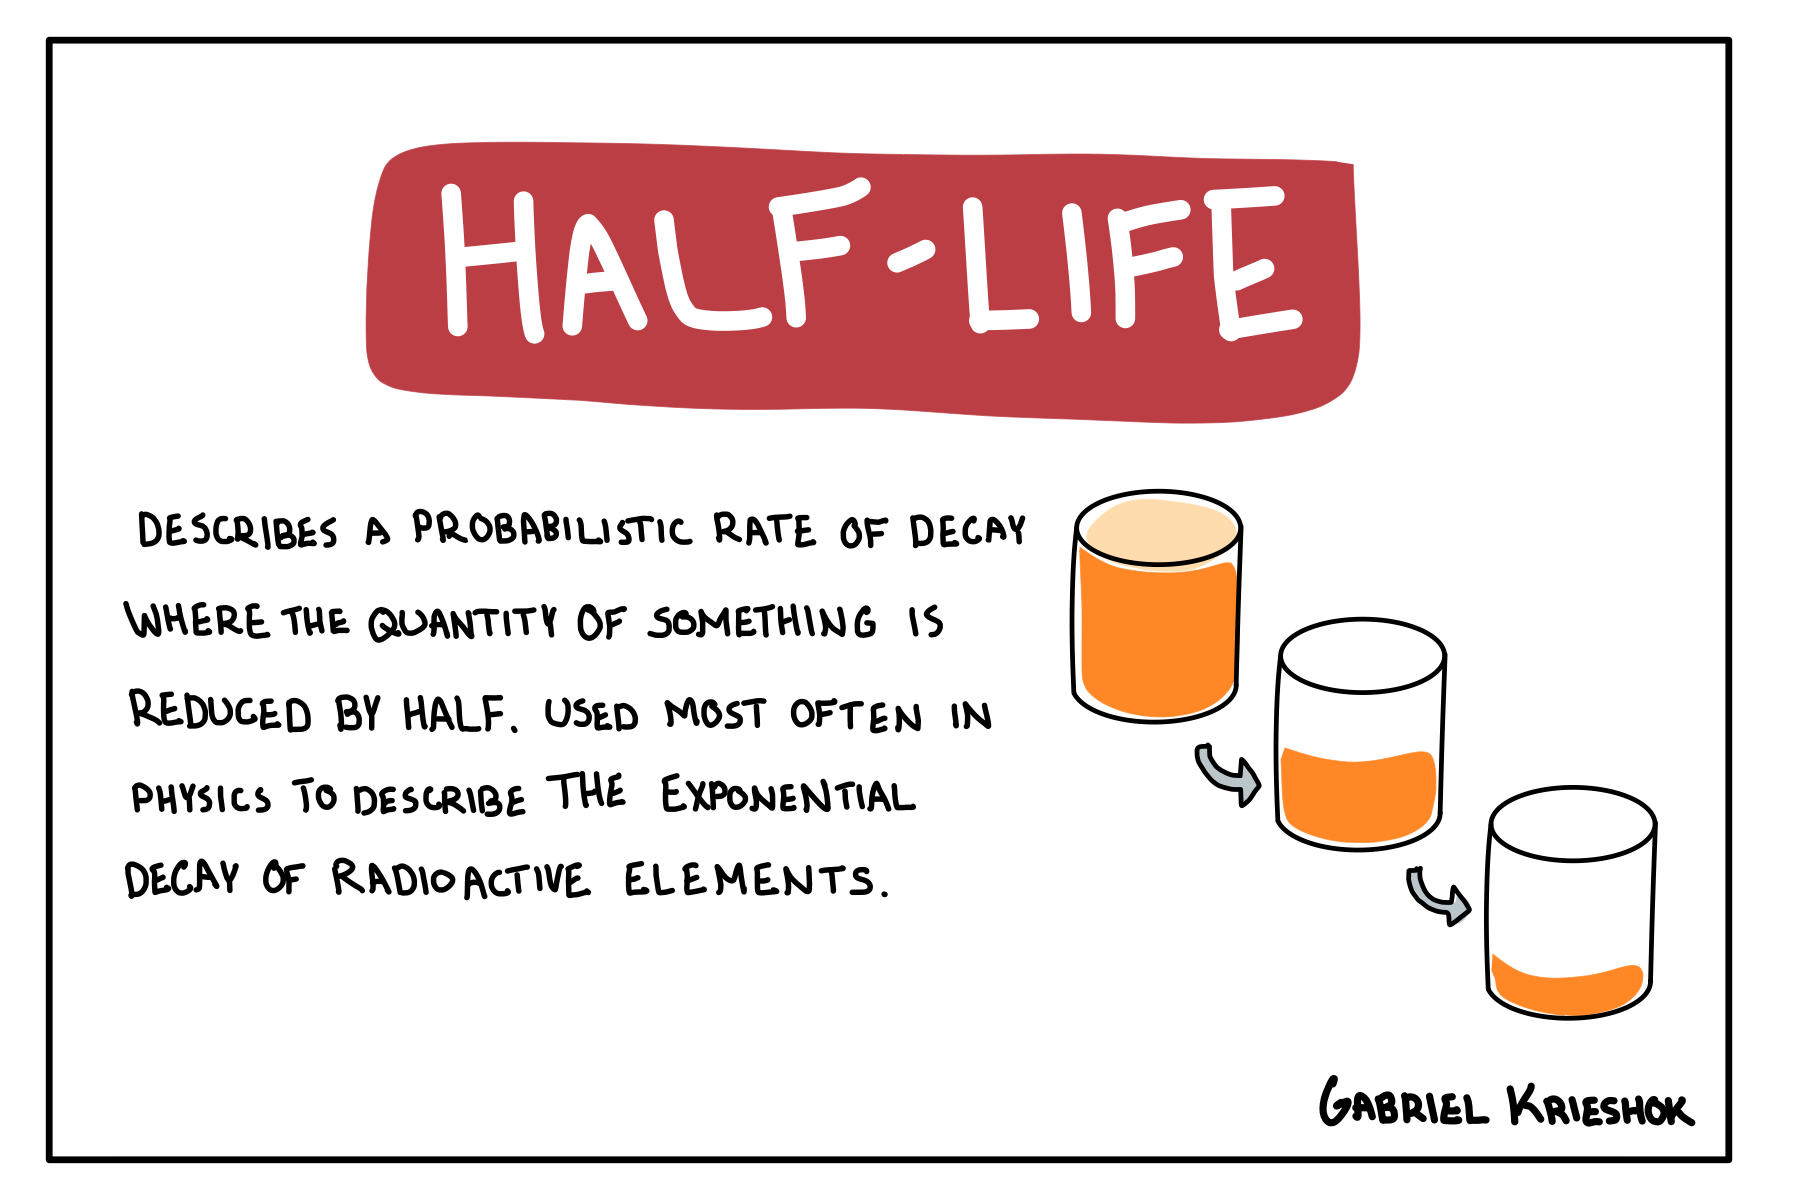 HALF-LIFE
DESCRIBES A PROBABILISTIC RATE OF DECAY
WHERE THE QUANTITY OF SOMETHING IS
REDUCED BY HALF. USED MOST OFTEN IN
PHYSICS TO DESCRIBE THE EXPONENTIAL
DECAY OF RADIOACTIVE ELEMENTS.
GABRIEL KRIESHOK